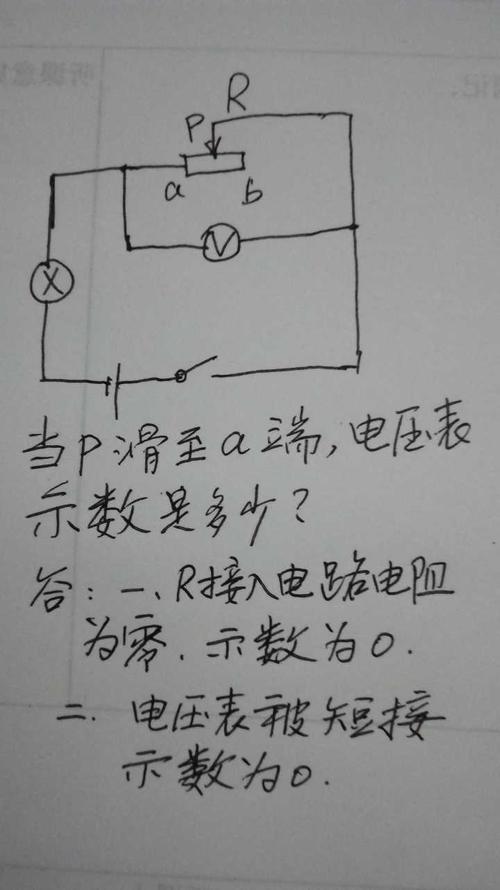 听课意见
R
P
a b
V
X
当P滑至a端,电压表
示数是多少?
答:一、R接入电路电阻
为零.示数为0.
二.电压表被短接
示数为0.